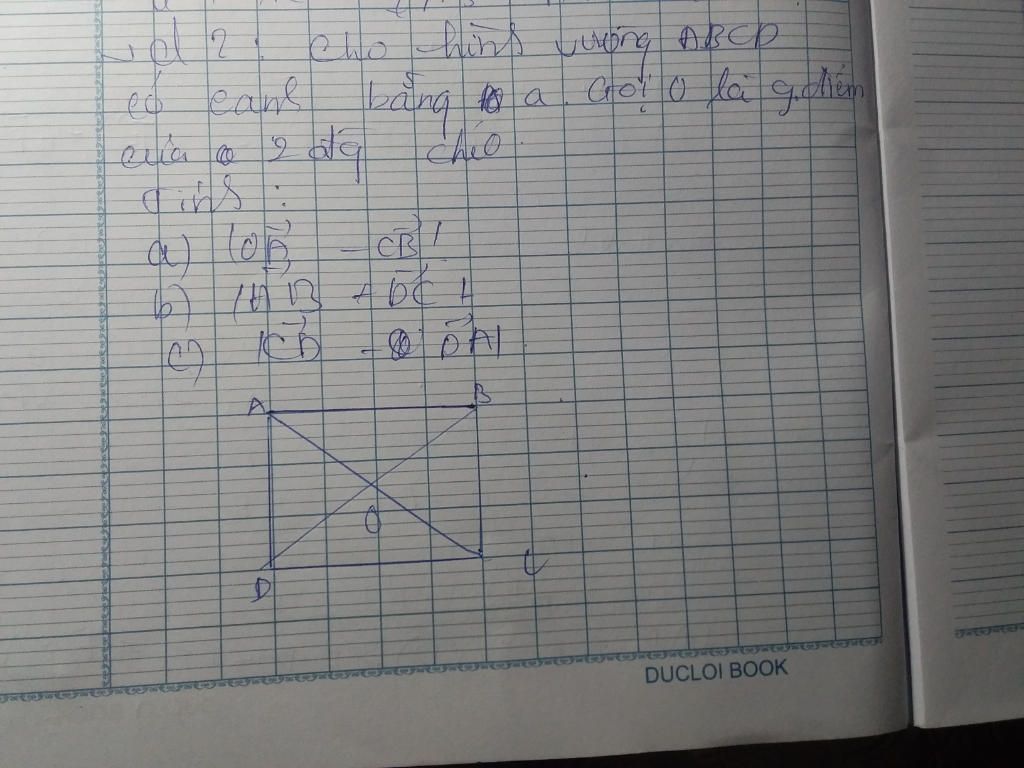 vd 2: Cho hình vuông ABCD
có cạnh bằng a. Gọi O là g.điểm
của 2 đtg chéo.
Tính :
a) |OA - CB|
b) |AB + DC|
c) |CD - DA|
A B
O
D C
DUCLOI BOOK